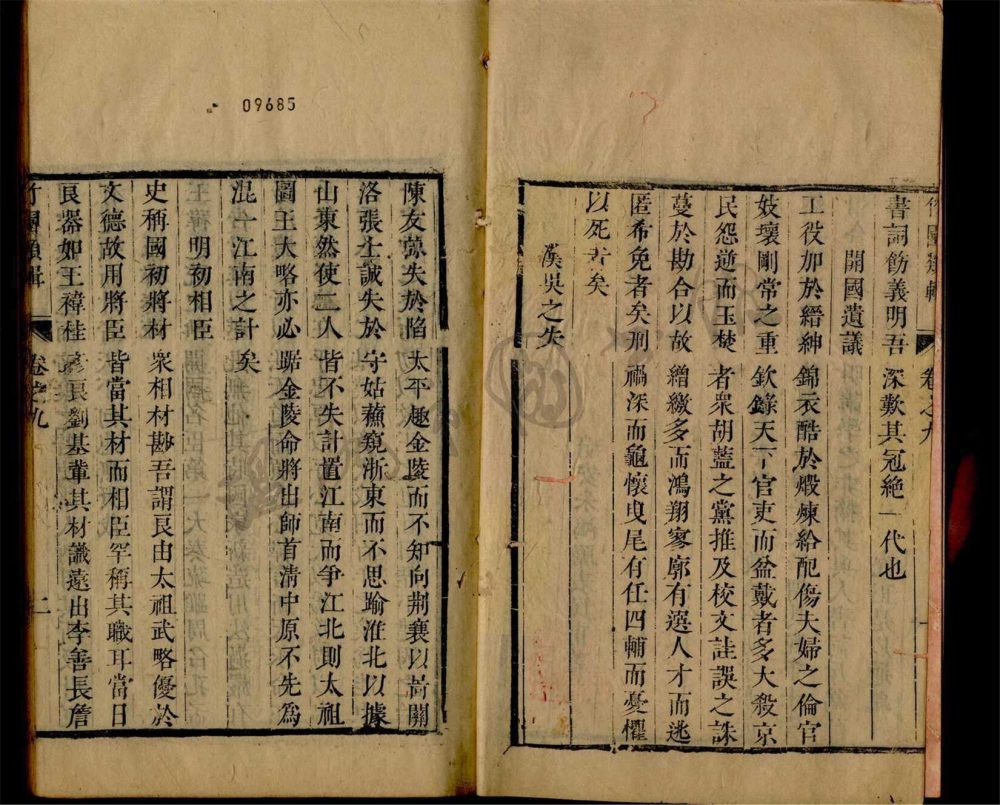 竹園類輯 卷之九
書詞飭義明吾深歎其冠絶一代也
開國遺議
工役加於縉紳錦衣酷於煆煉給配傷夫婦之倫官
妓壞剛常之重欽錄天下官吏而盆戴者多大殺京
民怨逆而玉焚者衆胡藍之黨推及校文詿誤之誅
蔓於勘合以故繒繳多而鴻翔寥廓有選人才而逃
匿希免者矣刑禍深而龜懷曳尾有任四輔而憂懼
以死者矣
漢吳之失
09685
陳友諒失於陷太平趣金陵而不知向荆襄以啇關
洛張士誠失於守姑蘇窺浙東而不思踰淮北以據
山東然使二人皆不失計置江南而争江北則太祖
圖王大略亦必踞金陵命將出師首清中原不先爲
混一江南之計矣
王禕明初相臣
史稱國初將材衆相材尠吾謂良由太祖武略優於
文德故用將臣皆當其材而相臣罕稱其職耳當日
良器如王禕桂彥良劉基輩其材識遠出李善長詹
竹園類輯 卷之九 二